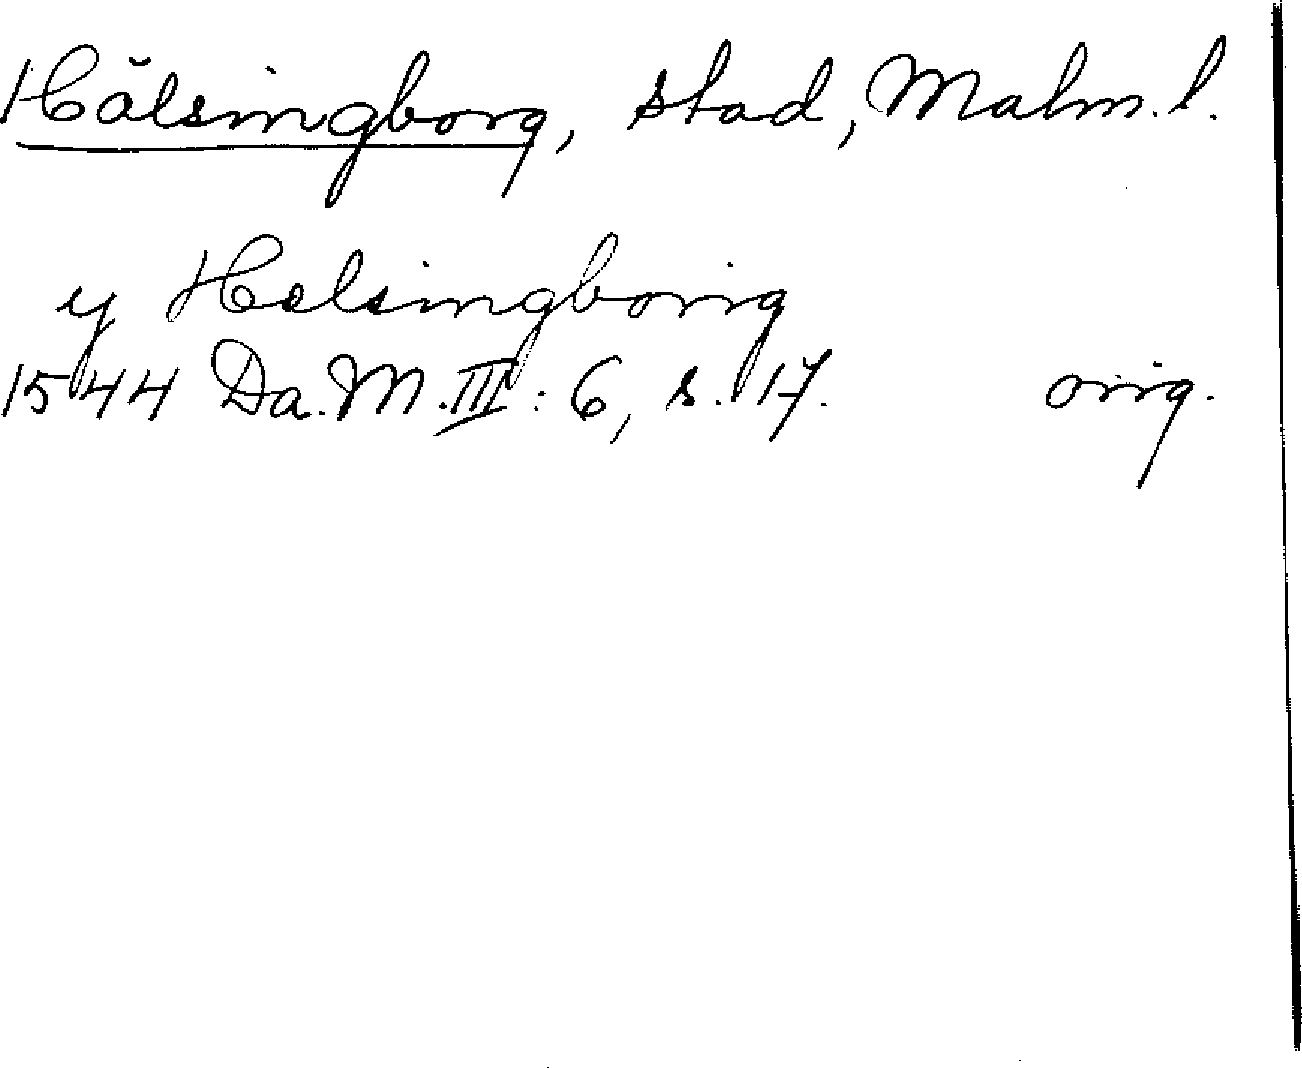 Hälsingborg, stad, Malm.l.
y Helsingborig
1544 Da.M.III: 6, s. 17. orig.